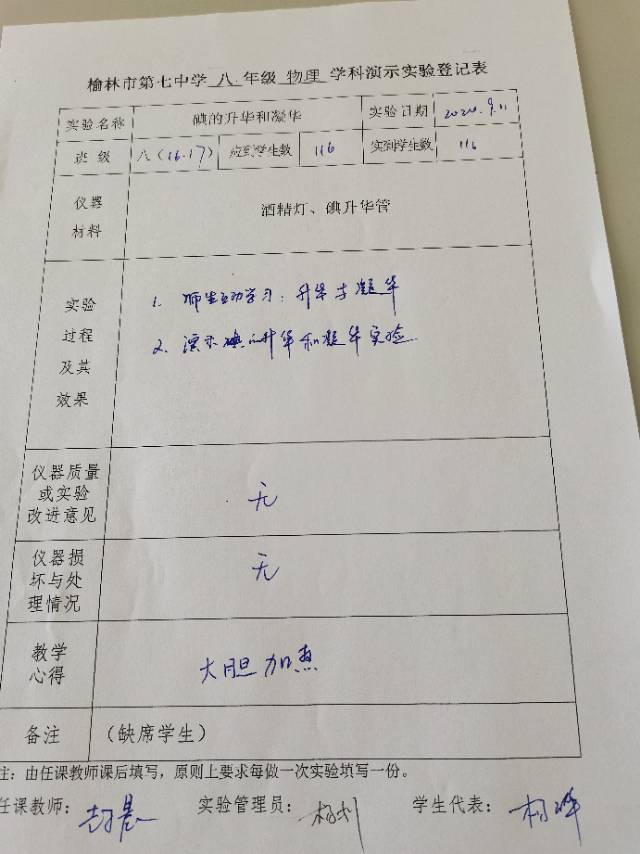 榆林市第七中学 八 年级 物理 学科演示实验登记表
实验名称 碘的升华和凝华 实验日期 2020.9.11
班 级 八(16.17) 应到学生数 116 实到学生数 116
仪器
材料
酒精灯、碘升华管
实验
过程
及其
效果
1. 师生互动学习:升华与凝华
2. 演示碘的升华和凝华实验
仪器质量
或实验
改进意见
无
仪器损
坏与处
理情况
无
教学
心得
大胆加热
备注 (缺席学生)
注:由任课教师课后填写,原则上要求每做一次实验填写一份。
任课教师: 实验管理员: 学生代表: